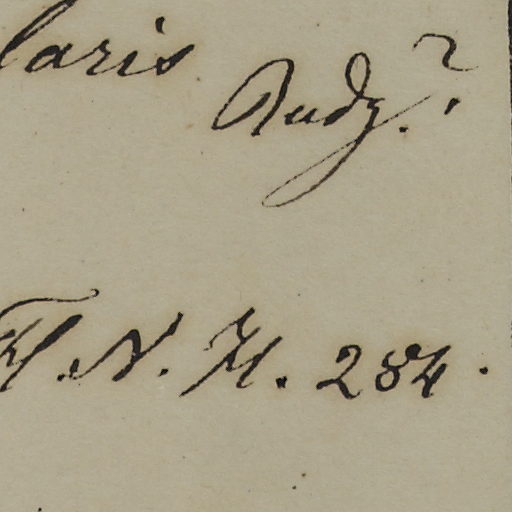 laris Rudg.?
Fl. N. H. 284.